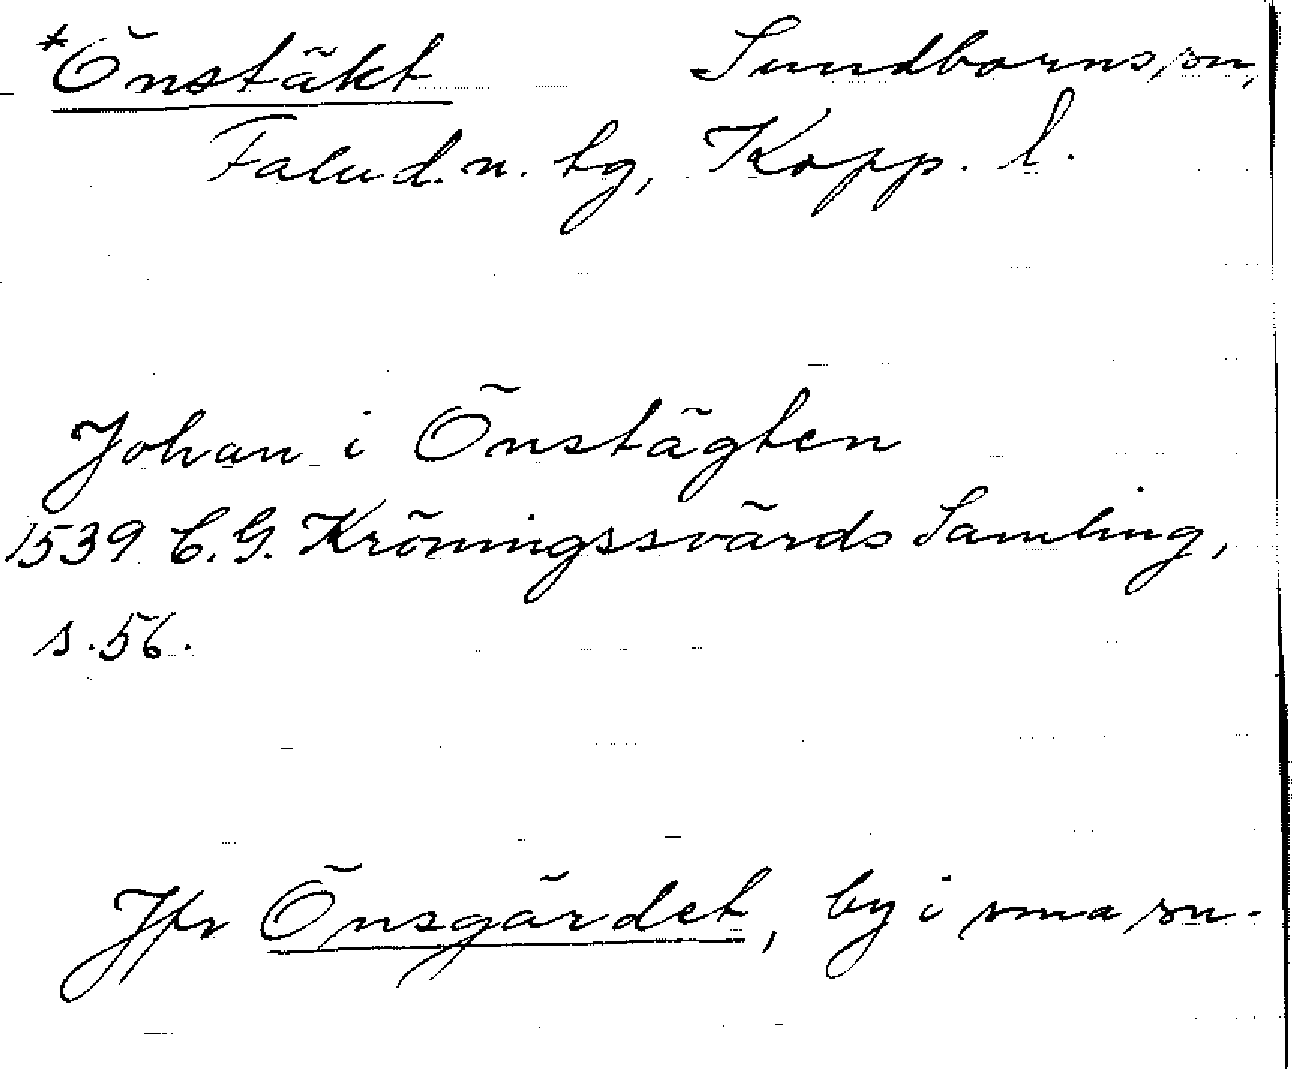 *Önstäkt Sundborns sn,
Falu d. n. tg, Kopp. l.
Johan i Önstägten
1539 C. G. Kröningssvärds Samling,
s. 56.
Jfr Önsgärdet, by i sma sn.